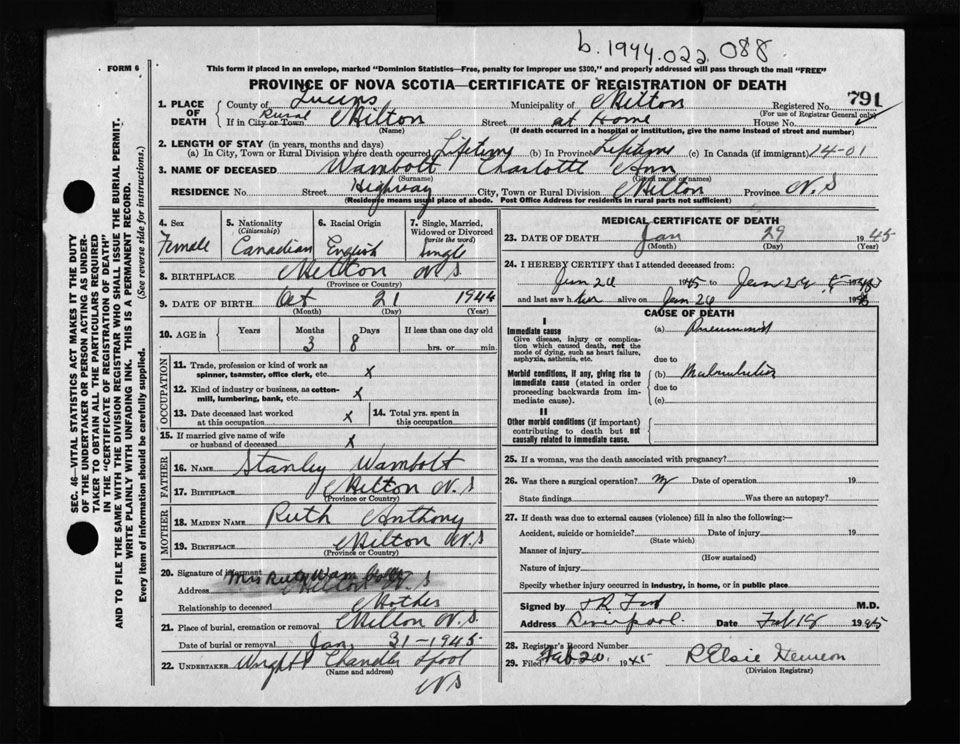 b. 1944.022.088
This form if placed in an envelope, marked "Dominion Statistics—Free, penalty for improper use $300," and properly addressed will pass through the mail "FREE"
FORM 6
PROVINCE OF NOVA SCOTIA—CERTIFICATE OF REGISTRATION OF DEATH
1. PLACE OF DEATH
County of Queens Municipality of Milton Registered No. 791
(For use of Registrar General only)
If in City or Town Rural Milton Street at Home House No.
(Name) (If death occurred in a hospital or institution, give the name instead of street and number)
2. LENGTH OF STAY (in years, months and days)
(a) In City, Town or Rural Division where death occurred Lifetime (b) In Province Lifetime (c) In Canada (if immigrant) 14-01
3. NAME OF DECEASED Wambolt Charlotte Ann
(Surname) (Given name or names)
RESIDENCE No. Street Highway City, Town or Rural Division Milton Province N.S
(Residence means usual place of abode. Post Office Address for residents in rural parts not sufficient)
4. Sex Female
5. Nationality (Citizenship) Canadian
6. Racial Origin English
7. Single, Married, Widowed or Divorced (write the word) Single
8. BIRTHPLACE Milton N.S
(Province or Country)
9. DATE OF BIRTH Oct 21 1944
(Month) (Day) (Year)
10. AGE in Years Months 3 Days 8 If less than one day old hrs. or min.
OCCUPATION
11. Trade, profession or kind of work as spinner, teamster, office clerk, etc. x
12. Kind of industry or business, as cotton-mill, lumbering, bank, etc. x
13. Date deceased last worked at this occupation x
14. Total yrs. spent in this occupation
15. If married give name of wife or husband of deceased x
FATHER
16. NAME Stanley Wambolt
17. BIRTHPLACE Milton N.S
(Province or Country)
MOTHER
18. MAIDEN NAME Ruth Anthony
19. BIRTHPLACE Milton N.S
(Province or Country)
20. Signature of informant Mrs Ruth Wambolt
Address Milton N.S
Relationship to deceased Mother
21. Place of burial, cremation or removal Milton N.S.
Date of burial or removal Jan 31-1945
22. UNDERTAKER Wright Chandler Lpool
(Name and address)
N S
MEDICAL CERTIFICATE OF DEATH
23. DATE OF DEATH Jan 29 1945
(Month) (Day) (Year)
24. I HEREBY CERTIFY that I attended deceased from:
Jan 26 1945 to Jan 26
and last saw her alive on Jan 26 19
CAUSE OF DEATH
I
Immediate cause
Give disease, injury or complication which caused death, not the mode of dying, such as heart failure, asphyxia, asthenia, etc.
(a)
due to
Morbid conditions, if any, giving rise to immediate cause (stated in order proceeding backwards from immediate cause).
(b) Malnutrition
due to
(c)
II
Other morbid conditions (if important) contributing to death but not causally related to immediate cause.
25. If a woman, was the death associated with pregnancy?
26. Was there a surgical operation? Date of operation 19
State findings Was there an autopsy?
27. If death was due to external causes (violence) fill in also the following:—
Accident, suicide or homicide? Date of injury 19
(State which)
Manner of injury
(How sustained)
Nature of injury
Specify whether injury occurred in industry, in home, or in public place
Signed by M.D.
Address Liverpool. Date Feb 18 1945
28. Registrar's Record Number
29. Filed Feb 20 1945 R Elsie
(Division Registrar)
SEC. 46—VITAL STATISTICS ACT MAKES IT THE DUTY
OF THE UNDERTAKER OR PERSON ACTING AS UNDER-
TAKER TO OBTAIN ALL THE PARTICULARS REQUIRED
IN THE "CERTIFICATE OF REGISTRATION OF DEATH"
AND TO FILE THE SAME WITH THE DIVISION REGISTRAR WHO SHALL ISSUE THE BURIAL PERMIT.
WRITE PLAINLY WITH UNFADING INK. THIS IS A PERMANENT RECORD.
Every item of information should be carefully supplied. (See reverse side for instructions.)